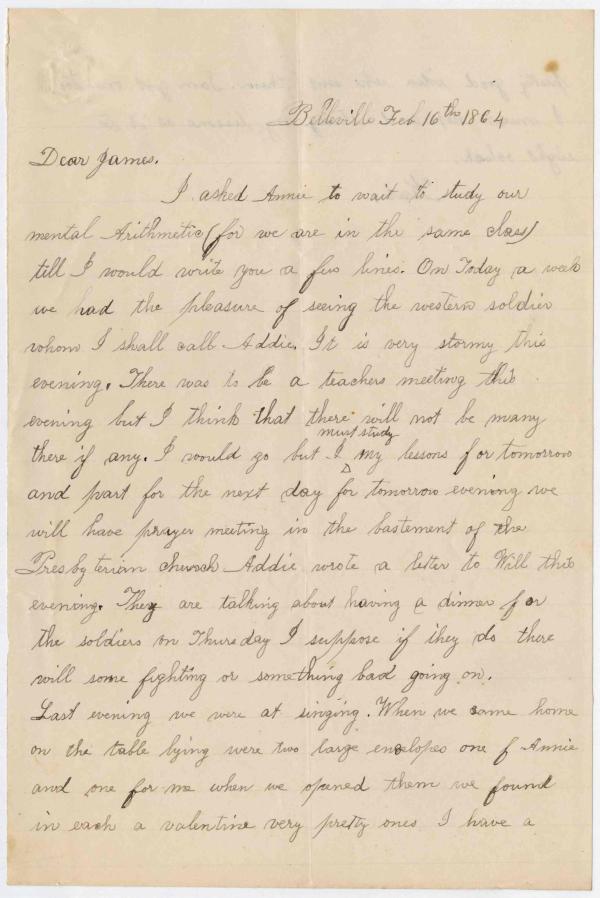 Belleville Feb 16th 1864
Dear James.
I asked Annie to wait to study our
mental Arithmetic (for we are in the same class)
till I would write you a few lines. On Today a week
we had the pleasure of seeing the western soldier
whom I shall call Addie. It is very stormy this
evening. There was to be a teachers meeting this
evening but I think that there will not be many
must study
there if any. I would go but I my lessons for tomorrow
and part for the next day for tomorrow evening we
will have prayer meeting in the bastement of the
Presbyterian church Addie wrote a letter to Will this
evening. They are talking about having a dinner for
the soldiers on Thursday I suppose if they do there
will some fighting or something bad going on.
Last evening we were at singing. When we came home
on the table lying were two large envelopes one f Annie
and one for me when we opened them we found
in each a valentine very pretty ones I have a